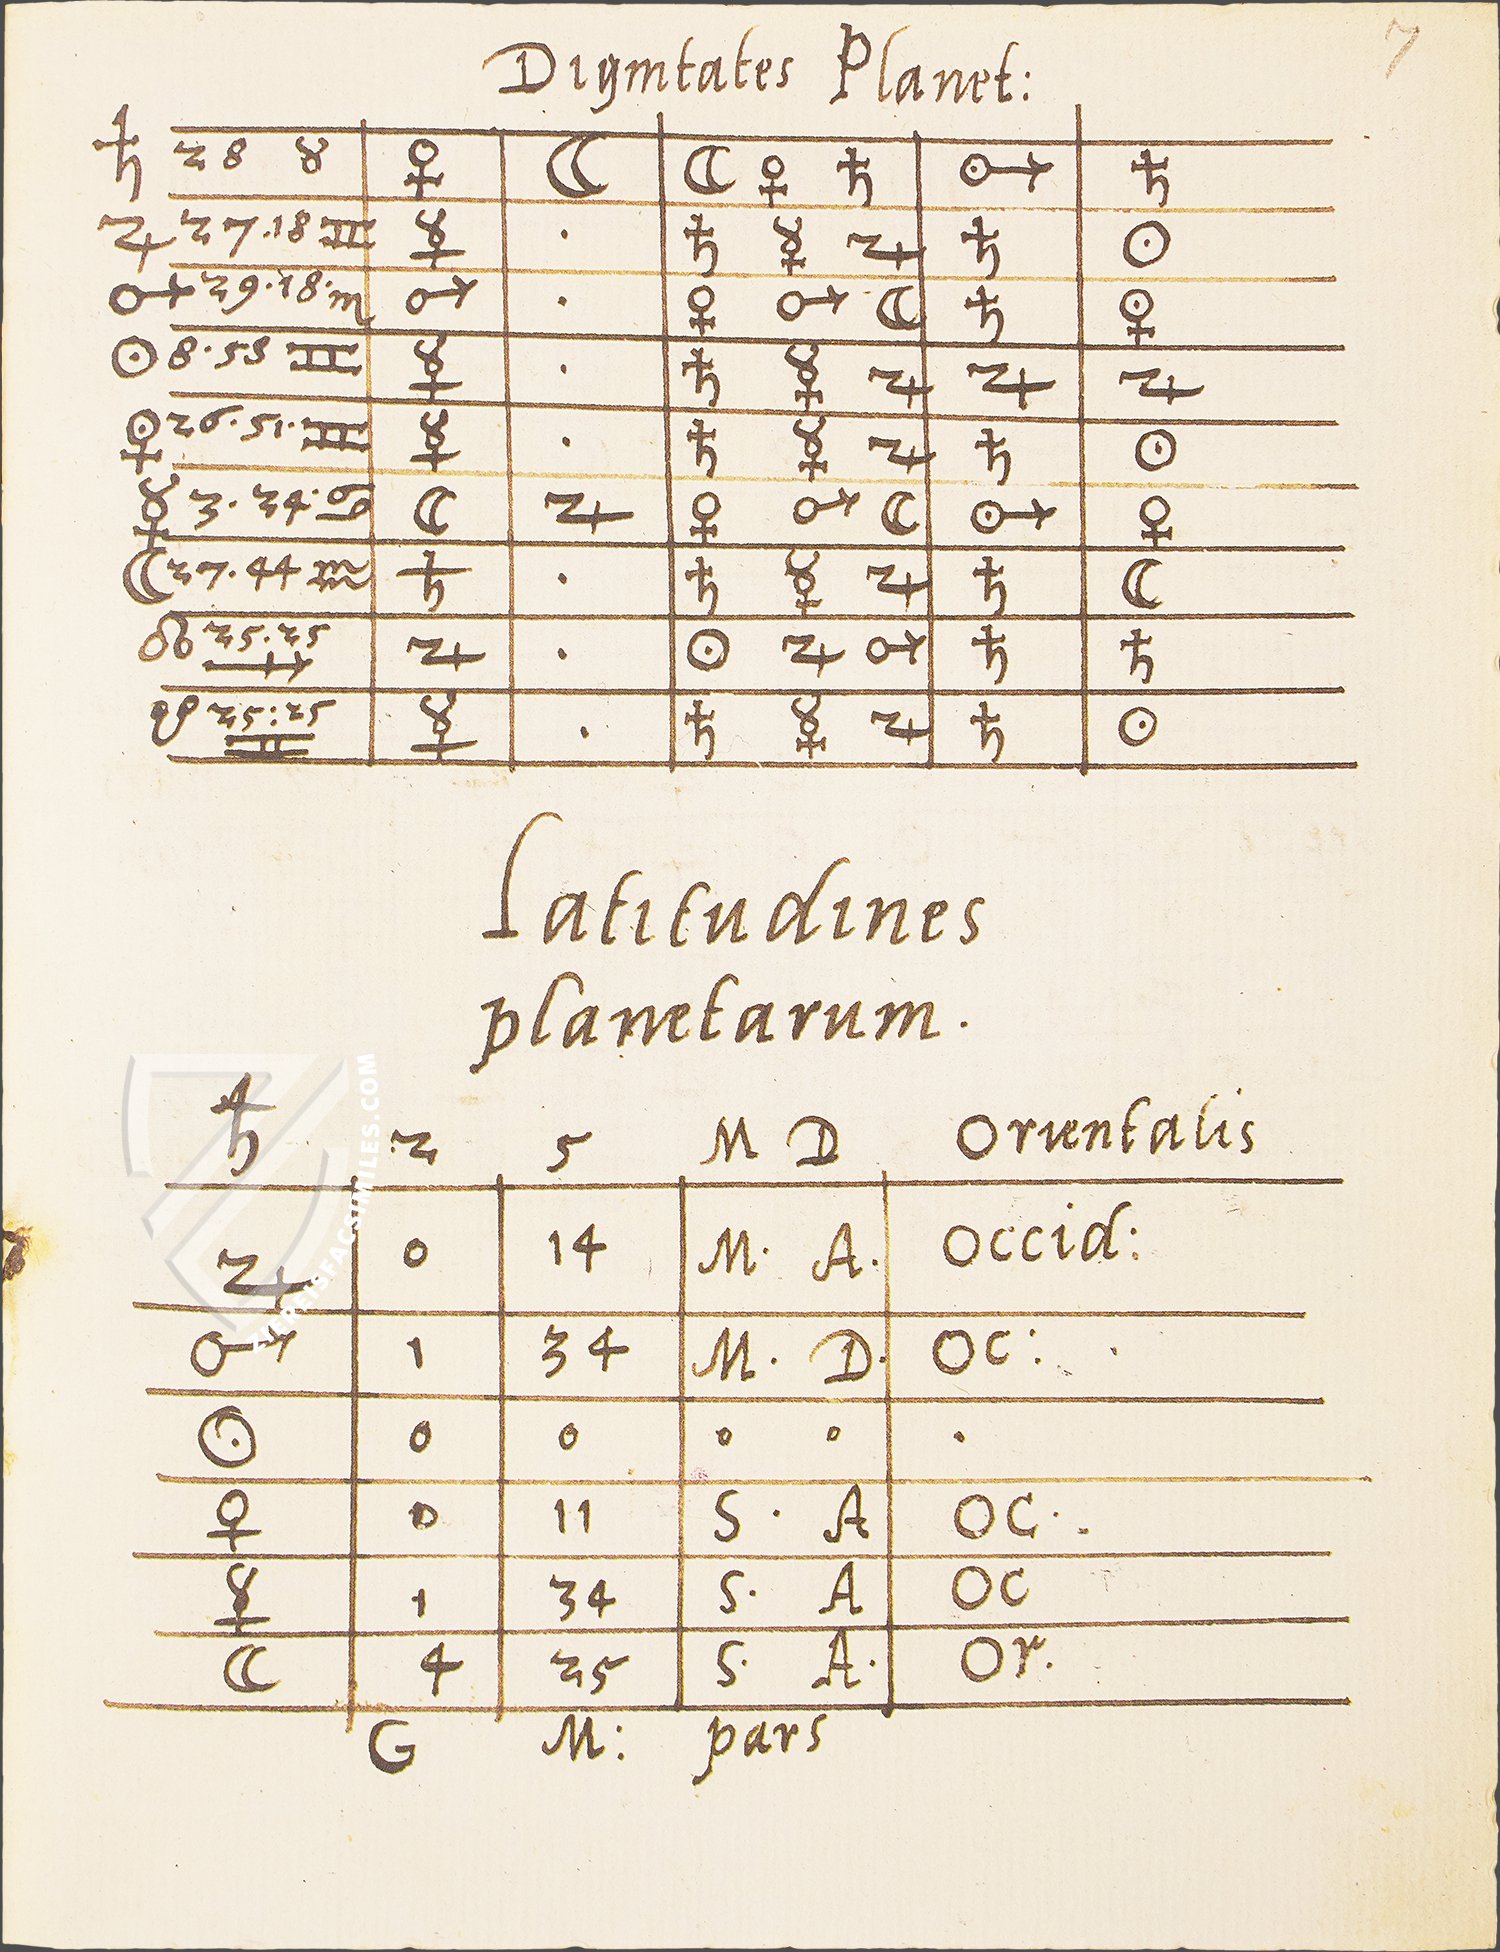 7
Dignitates Planet:
♄ 28 ♉ ♀ ☾ ☾ ♀ ♄ ♂ ♄
♃ 27·18 ♊ ☿ · ♄ ☿ ♃ ♄ ☉
♂ 29·18· ♏ ♂ · ♀ ♂ ☾ ♄ ♀
☉ 8·53 ♊ ☿ · ♄ ☿ ♃ ♃ ♃
♀ 26·51· ♊ ☿ · ♄ ☿ ♃ ♄ ☉
☿ 3·34· ♋ ☾ ♃ ♀ ♂ ☾ ♂ ♀
☾ 27·44 ♒ ♄ · ♄ ☿ ♃ ♄ ☾
☊ 25·25 ♐ ♃ · ☉ ♃ ♂ ♄ ♄
☋ 25:25 ♊ ☿ · ♄ ☿ ♃ ♄ ☉
Latitudines
planetarum.
♄ 2 5 M D Orientalis
♃ 0 14 M· A. Occid:
♂ 1 34 M· D. Oc:
☉ 0 0 0 0 ·
♀ 0 11 S· A Oc·.
☿ 1 34 S· A Oc
☾ 4 25 S· A· Or.
G M: pars
ZIEREISFACSIMILES.COM